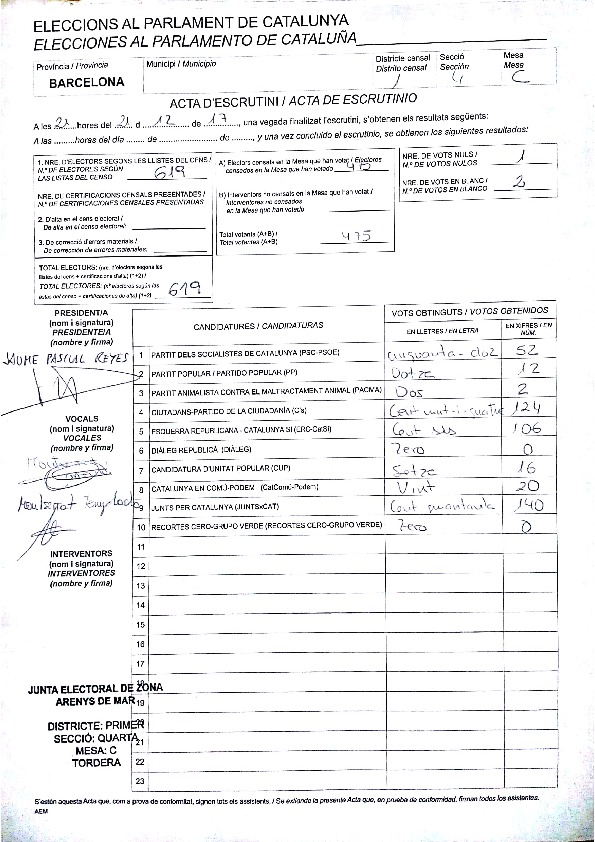 ELECCIONS AL PARLAMENT DE CATALUNYA
ELECCIONES AL PARLAMENTO DE CATALUÑA
Província / Provincia
BARCELONA
Municipi / Municipio
Districte censal
Distrito censal
1
Secció
Sección
4
Mesa
Mesa
C
ACTA D'ESCRUTINI / ACTA DE ESCRUTINIO
A les 21 hores del 21 d 12 de 17, una vegada finalitzat l'escrutini, s'obtenen els resultats següents:
A las ......... horas del día ....... de ....................... de ........., y una vez concluido el escrutinio, se obtienen los siguientes resultados:
1. NRE. D'ELECTORS SEGONS LES LLISTES DEL CENS /
N.º DE ELECTORES SEGÚN
LAS LISTAS DEL CENSO 619
NRE. DE CERTIFICACIONS CENSALS PRESENTADES /
N.º DE CERTIFICACIONES CENSALES PRESENTADAS
2. D'alta en el cens electoral /
De alta en el censo electoral
3. De correcció d'errors materials /
De corrección de errores materiales
TOTAL ELECTORS: (nre. d'electors segons les
llistes del cens + certificacions d'alta) (1+2) /
TOTAL ELECTORES: (nº electores según las
listas del censo + certificaciones de alta) (1+2) 619
A) Electors censats en la Mesa que han votat / Electores
censados en la Mesa que han votado
B) Interventors no censats en la Mesa que han votat /
Interventores no censados
en la Mesa que han votado
Total votants (A+B) /
Total votantes (A+B) 475
NRE. DE VOTS NULS /
N.º DE VOTOS NULOS 1
NRE. DE VOTS EN BLANC /
N.º DE VOTOS EN BLANCO 2
PRESIDENT/A
(nom i signatura)
PRESIDENTE/A
(nombre y firma)
JAUME PASCUAL REYES
VOCALS
(nom i signatura)
VOCALES
(nombre y firma)
Montserrat
INTERVENTORS
(nom i signatura)
INTERVENTORES
(nombre y firma)
CANDIDATURES / CANDIDATURAS
VOTS OBTINGUTS / VOTOS OBTENIDOS
EN LLETRES / EN LETRA
EN XIFRES / EN NÚM.
1 PARTIT DELS SOCIALISTES DE CATALUNYA (PSC-PSOE) cinquanta-dos 52
2 PARTIT POPULAR / PARTIDO POPULAR (PP) Dotze 12
3 PARTIT ANIMALISTA CONTRA EL MALTRACTAMENT ANIMAL (PACMA) Dos 2
4 CIUTADANS-PARTIDO DE LA CIUDADANÍA (C's) Cent vint-i-quatre 124
5 ESQUERRA REPUBLICANA - CATALUNYA SÍ (ERC-CatSí) Cent sis 106
6 DIÀLEG REPUBLICÀ (DIÀLEG) Zero 0
7 CANDIDATURA D'UNITAT POPULAR (CUP) Setze 16
8 CATALUNYA EN COMÚ-PODEM (CatComú-Podem) Vint 20
9 JUNTS PER CATALUNYA (JUNTSxCAT) Cent quaranta 140
10 RECORTES CERO-GRUPO VERDE (RECORTES CERO-GRUPO VERDE) Zero 0
11
12
13
14
15
16
17
18
19
20
21
22
23
JUNTA ELECTORAL DE ZONA
ARENYS DE MAR
DISTRICTE: PRIMER
SECCIÓ: QUARTA
MESA: C
TORDERA
S'estén aquesta Acta que, com a prova de conformitat, signen tots els assistents. / Se extiende la presente Acta que, en prueba de conformidad, firman todos los asistentes.
AEM